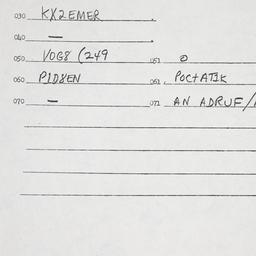 030 KX2EMER
040 —
050 VOG8 (249 051
060 P1D8EN 061 POCTATIK
070 — 071 AN ADRUF/